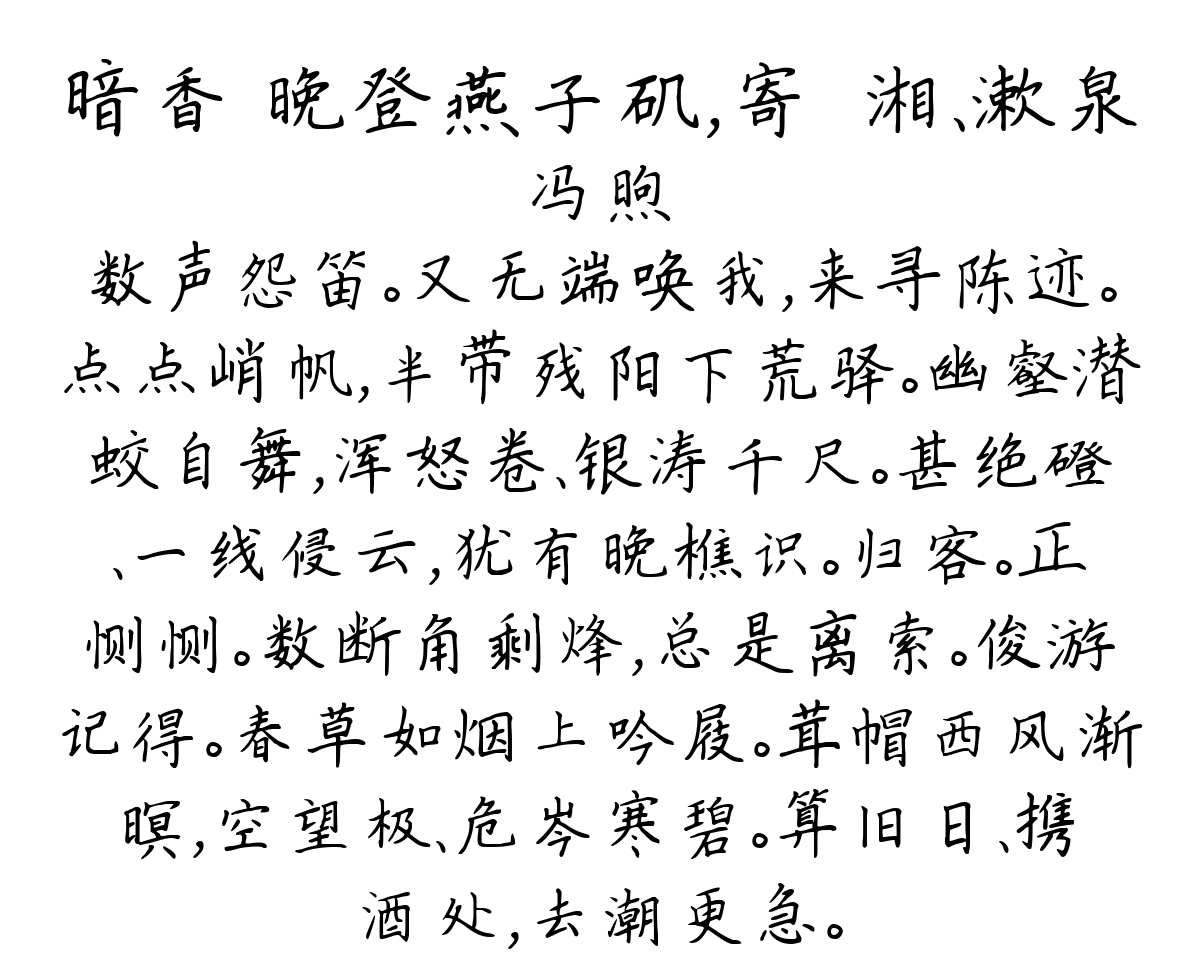 暗香 晚登燕子矶,寄 湘、漱泉
冯煦
数声怨笛。又无端唤我,来寻陈迹。
点点峭帆,半带残阳下荒驿。幽壑潜
蛟自舞,浑怒卷、银涛千尺。甚绝磴
、一线侵云,犹有晚樵识。归客。正
恻恻。数断角剩烽,总是离索。俊游
记得。春草如烟上吟屐。茸帽西风渐
暝,空望极、危岑寒碧。算旧日、携
酒处,去潮更急。